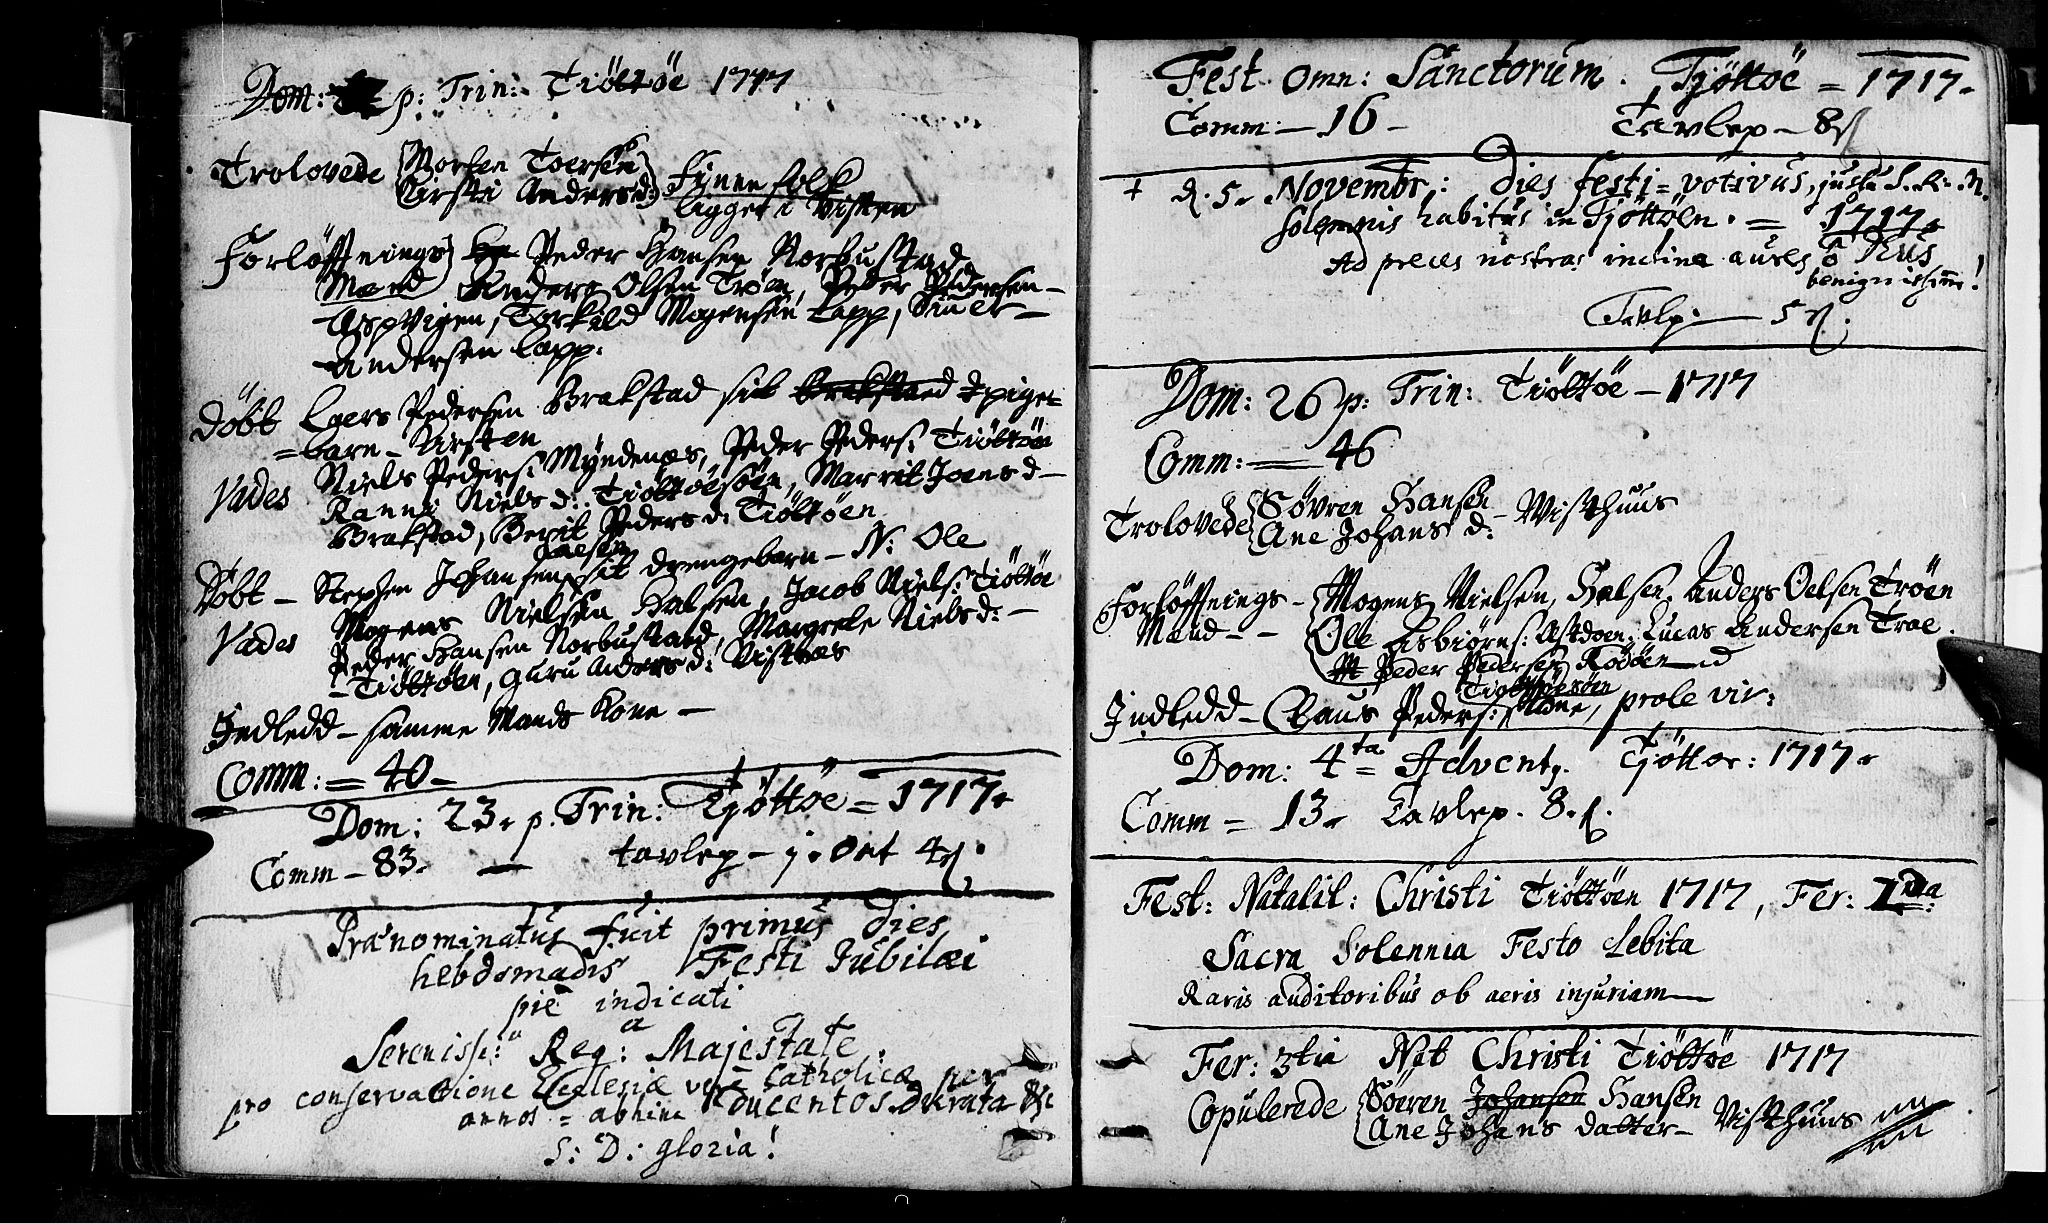 Dom: p: Trin: Tiøttøe 1717
Trolovede Morten Toersøn
Kirsti Anders d: Finne folk
ligget i Visten
Forløffnings Peder Hansen Norbustad
Mænd Anders Olsen Trøen, Peder Pedersen
Aspvigen, Torkild Mogensen Lapp, Siuer
Andersen Lapp.
Døbt Laers Pedersen Brakstad sit brakstad pige
barn - Kirsten
Vades Niels Peders: Myndenæs, Peder Peders: Tiøttøen
Ranni Niels d: Tiøttøesøen, Marrit Joens d
Brakstad, Berit Peders d: Tiøttøen
Døbt - Stephen Johansen sit drengebarn - N: Ole
Vades Mogens Nielsen Halsen, Jacob Niels: Tiøttøe
Peder Hansen Norbustad, Margrete Niels d:
Tiøttøen, Guru Anders d: Vistnæs
Indledd - samme Mands Kone -
Comm: = 40 -
Dom: 23. p. Trin: Tjøttøe = 1717.
Comm - 83. - tavlep - j. Ort 4
Prænominatus fuit primus dies
hebdomadis Festi Jubilæi
pie indicati
a
Sereniss: Reg: Majestate
pro conservatione Ecclesiæ veré Catholicæ per
annos = abhinc ducentos durata &c
S: D: gloria!
Fest Omn: Sanctorum. Tjøttøe = 1717.
Comm: - 16 - Tavlep - 8
† d. 5. Novembr: dies festi = votivus, jussu S. R. M.
solennis habitus in Tjøttøen. = 1717.
Ad preces nostras inclina aures ô
benignissime!
Tavlp: - 5
Dom: 26 p: Trin: Tiøttøe - 1717
Comm: - 46
Trolovede Søvren Hansen
Ane Johans d: - Visthuus
Forløffnings - Mogens Nielsen, Halsen, Anders Oelsen Trøen
Mænd - - Ole Asbiørns: Astdoen, Lucas Andersen Trae
Peder Pedersen Rødøen
Tiøttøesøen
Indledd - Claus Peders: , prole vir:
Dom: 4ta Advent. Tjøttoe: 1717.
Comm = 13. Tavlep. 8.
Fest: Natalit: Christi Tiøttøen 1717, Fer: 1ma
Sacra Solennia Festo debita
Raris auditoribus ob aeris injuriam
Fer: 3tia Nat Christi Tiøttøe 1717
Copulerede Søeren Johansen Hansen
Ane Johans datter - Visthuus